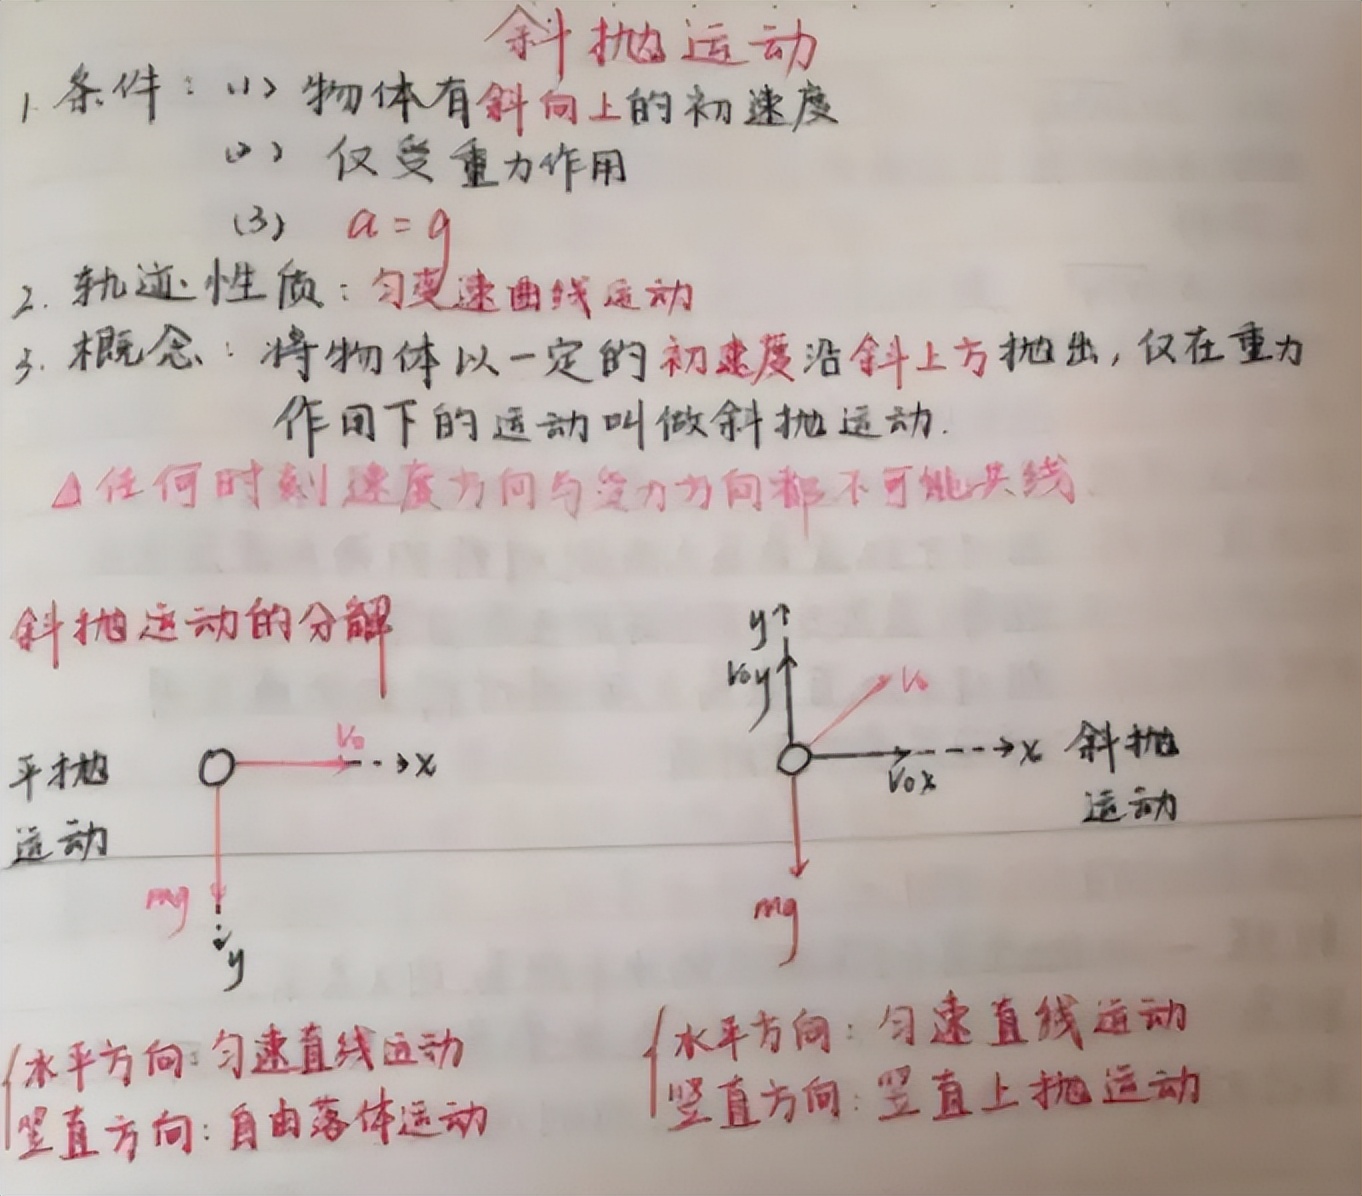 斜抛运动
1. 条件：(1) 物体有斜向上的初速度
(2) 仅受重力作用
(3) a=g
2. 轨迹性质：匀变速曲线运动
3. 概念：将物体以一定的初速度沿斜上方抛出，仅在重力
作用下的运动叫做斜抛运动.
△任何时刻速度方向与受力方向都不可能共线
斜抛运动的分解
平抛
运动
V₀
x
mg
y
y
V₀y
V₀
x
V₀x
mg
斜抛
运动
水平方向：匀速直线运动
竖直方向：自由落体运动
水平方向：匀速直线运动
竖直方向：竖直上抛运动